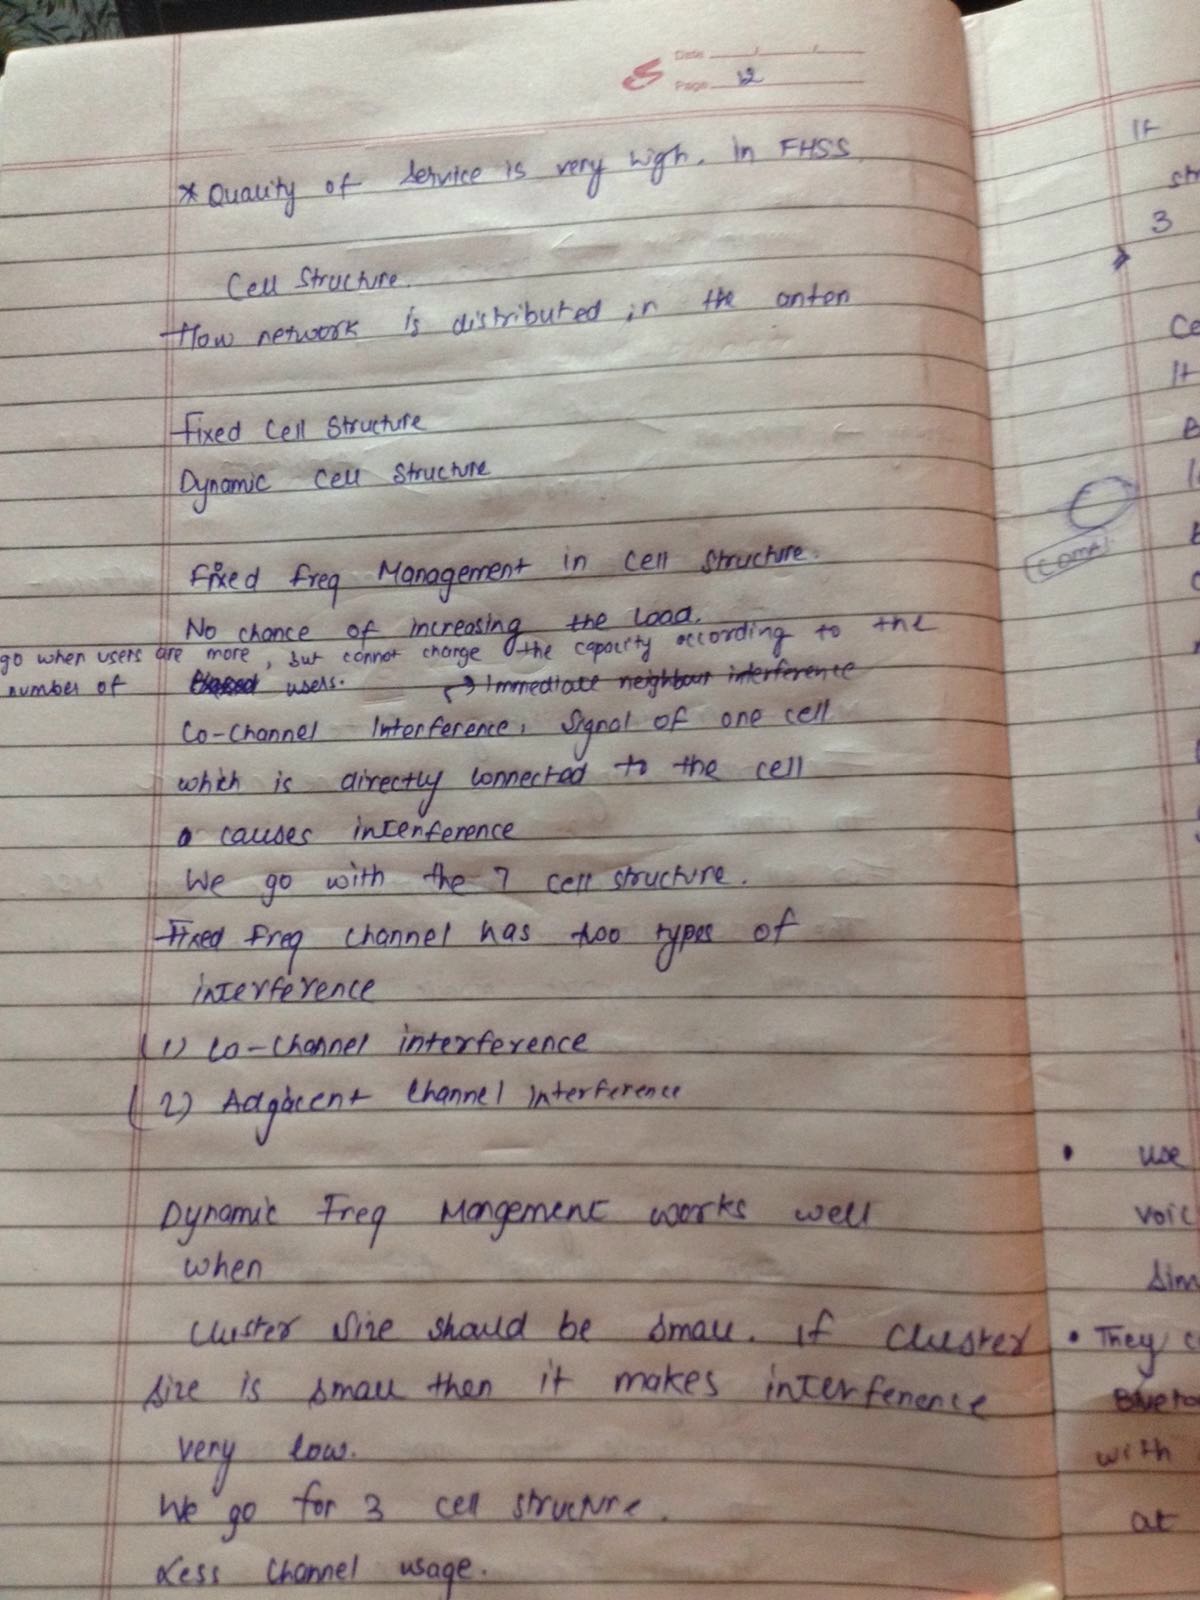 Date
Page 12
* Quality of service is very high. In FHSS
Cell Structure.
How network is distributed in the anten
Fixed Cell Structure
Dynamic Cell Structure
Fixed freq Management in cell structure.
No chance of increasing the load.
go when users are more, but cannot change the capacity according to the
number of users.
→ Immediate neighbour interference
Co-Channel Interference, Signal of one cell
which is directly connected to the cell
causes interference
We go with the 7 cell structure.
Fixed freq channel has two types of
interference
(1) Co-Channel interference
(2) Adgacent Channel interference
Dynamic Freq Mangement works well
when
Cluster size should be small. If Cluster
size is small then it makes interference
very low.
We go for 3 cell structure.
Less Channel usage.
If
3
It
• use
voic
sim
• They c
with
at